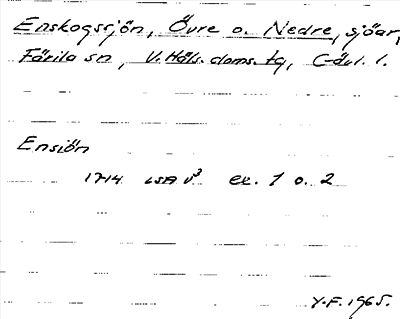 Enskogssjön, Övre o. Nedre, sjöar,
Färila sn, V. Häls. doms. tg, G-ävl. l.
Ensiön
1714 LSA V³ ex. 1 o. 2
Y.F. 1965.